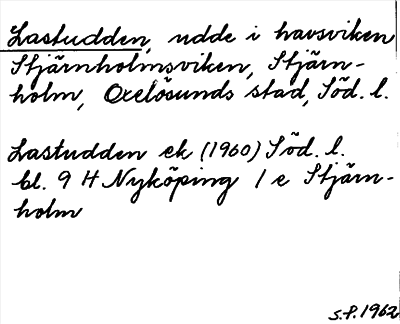 Lastudden, udde i havsviken
Stjärnholmsviken, Stjärn-
holm, Oxelösunds stad, Söd. l.
Lastudden ek (1960) Söd. l.
bl. 9 H Nyköping 1 e Stjärn-
holm
S.P. 1962